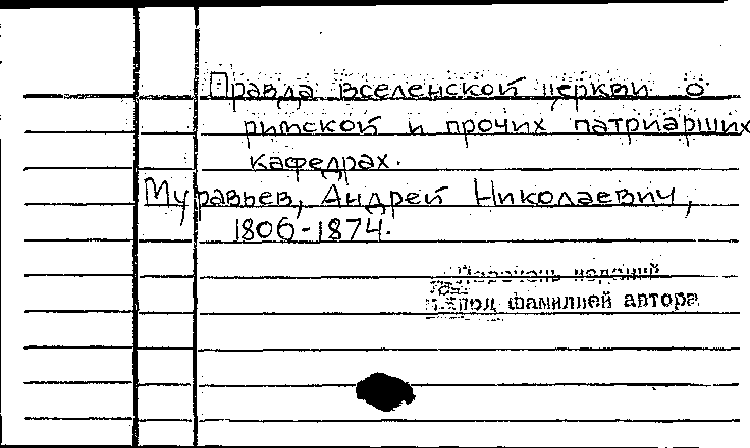 Правда вселенской церкви о
римской и прочих патриарших
кафедрах.
Муравьев, Андрей Николаевич,
1806-1874.
Перечень изданий
под фамилией автора